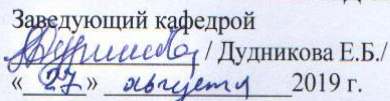 Заведующий кафедрой
/ Дудникова Е.Б./
«27» августа 2019 г.